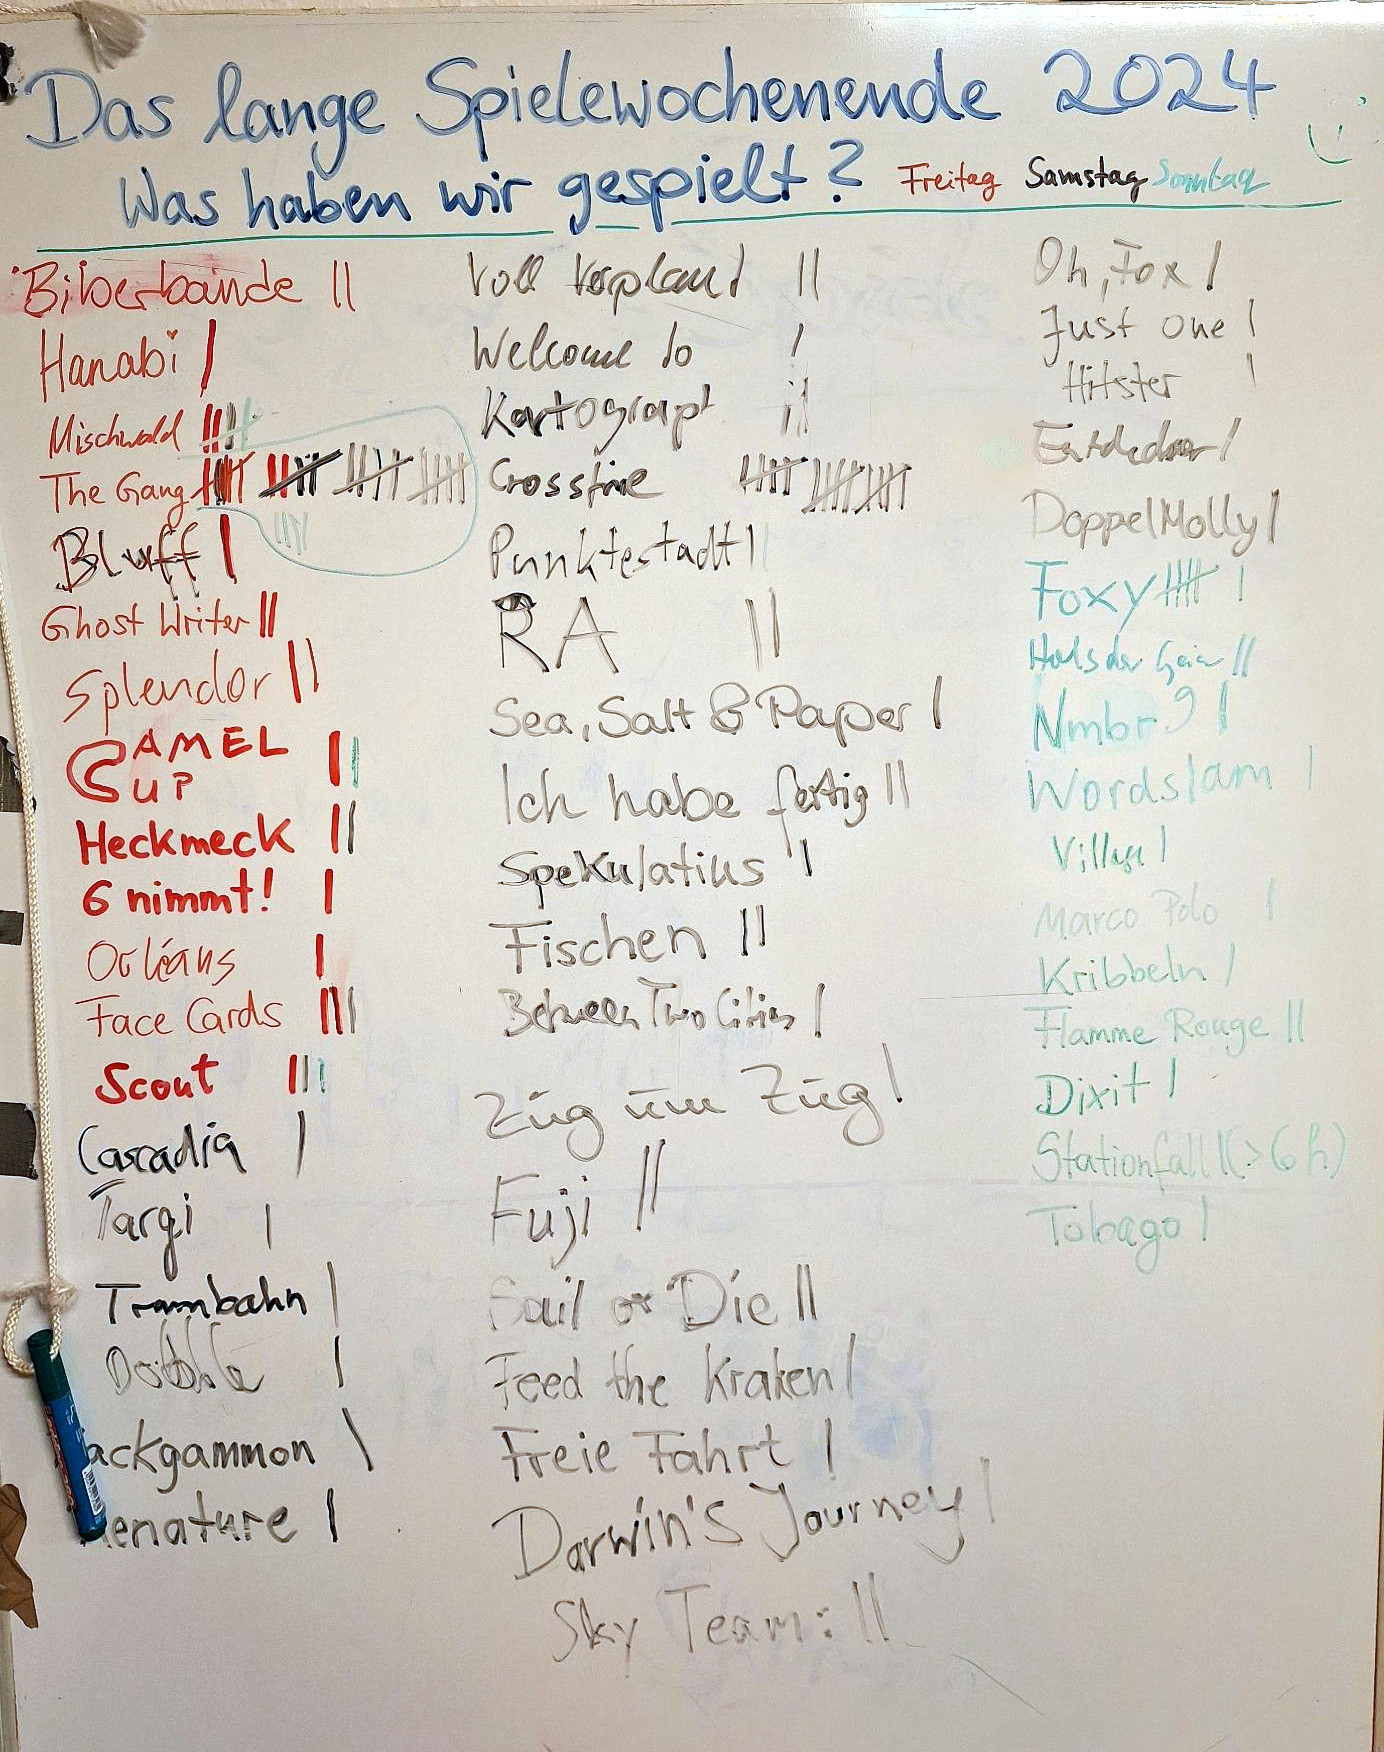 Das lange Spielewochenende 2024
Was haben wir gespielt? Freitag Samstag Sonntag
Biberbande ||
Hanabi |
Mischwald ||||
The Gang |||| |||| |||| |||| ||||
Bluff |
Ghost Writer ||
Splendor ||
CAMEL UP ||
Heckmeck ||
6 nimmt! |
Orléans |
Face Cards |||
Scout |||
Cascadia |
Targi |
Trambahn |
Dobble |
ackgammon |
enature |
Voll verplant ||
Welcome to |
Kartograph ||
Crossfire |||| |||| ||||
Punktestadt ||
RA ||
Sea, Salt & Paper |
Ich habe fertig ||
Spekulatius |
Fischen ||
Between Two Cities |
Zug um Zug |
Fuji ||
Sail or Die ||
Feed the Kraken |
Freie Fahrt |
Darwin's Journey |
Sky Team: ||
Oh, Fox |
Just One |
Hitster |
Entdecker |
DoppelMolly |
Foxy |||| |
Hols der Geier ||
Nmbr 9 |
Wordslam |
Village |
Marco Polo |
Kribbeln |
Flamme Rouge ||
Dixit |
Stationfall | (>6h)
Tobago |